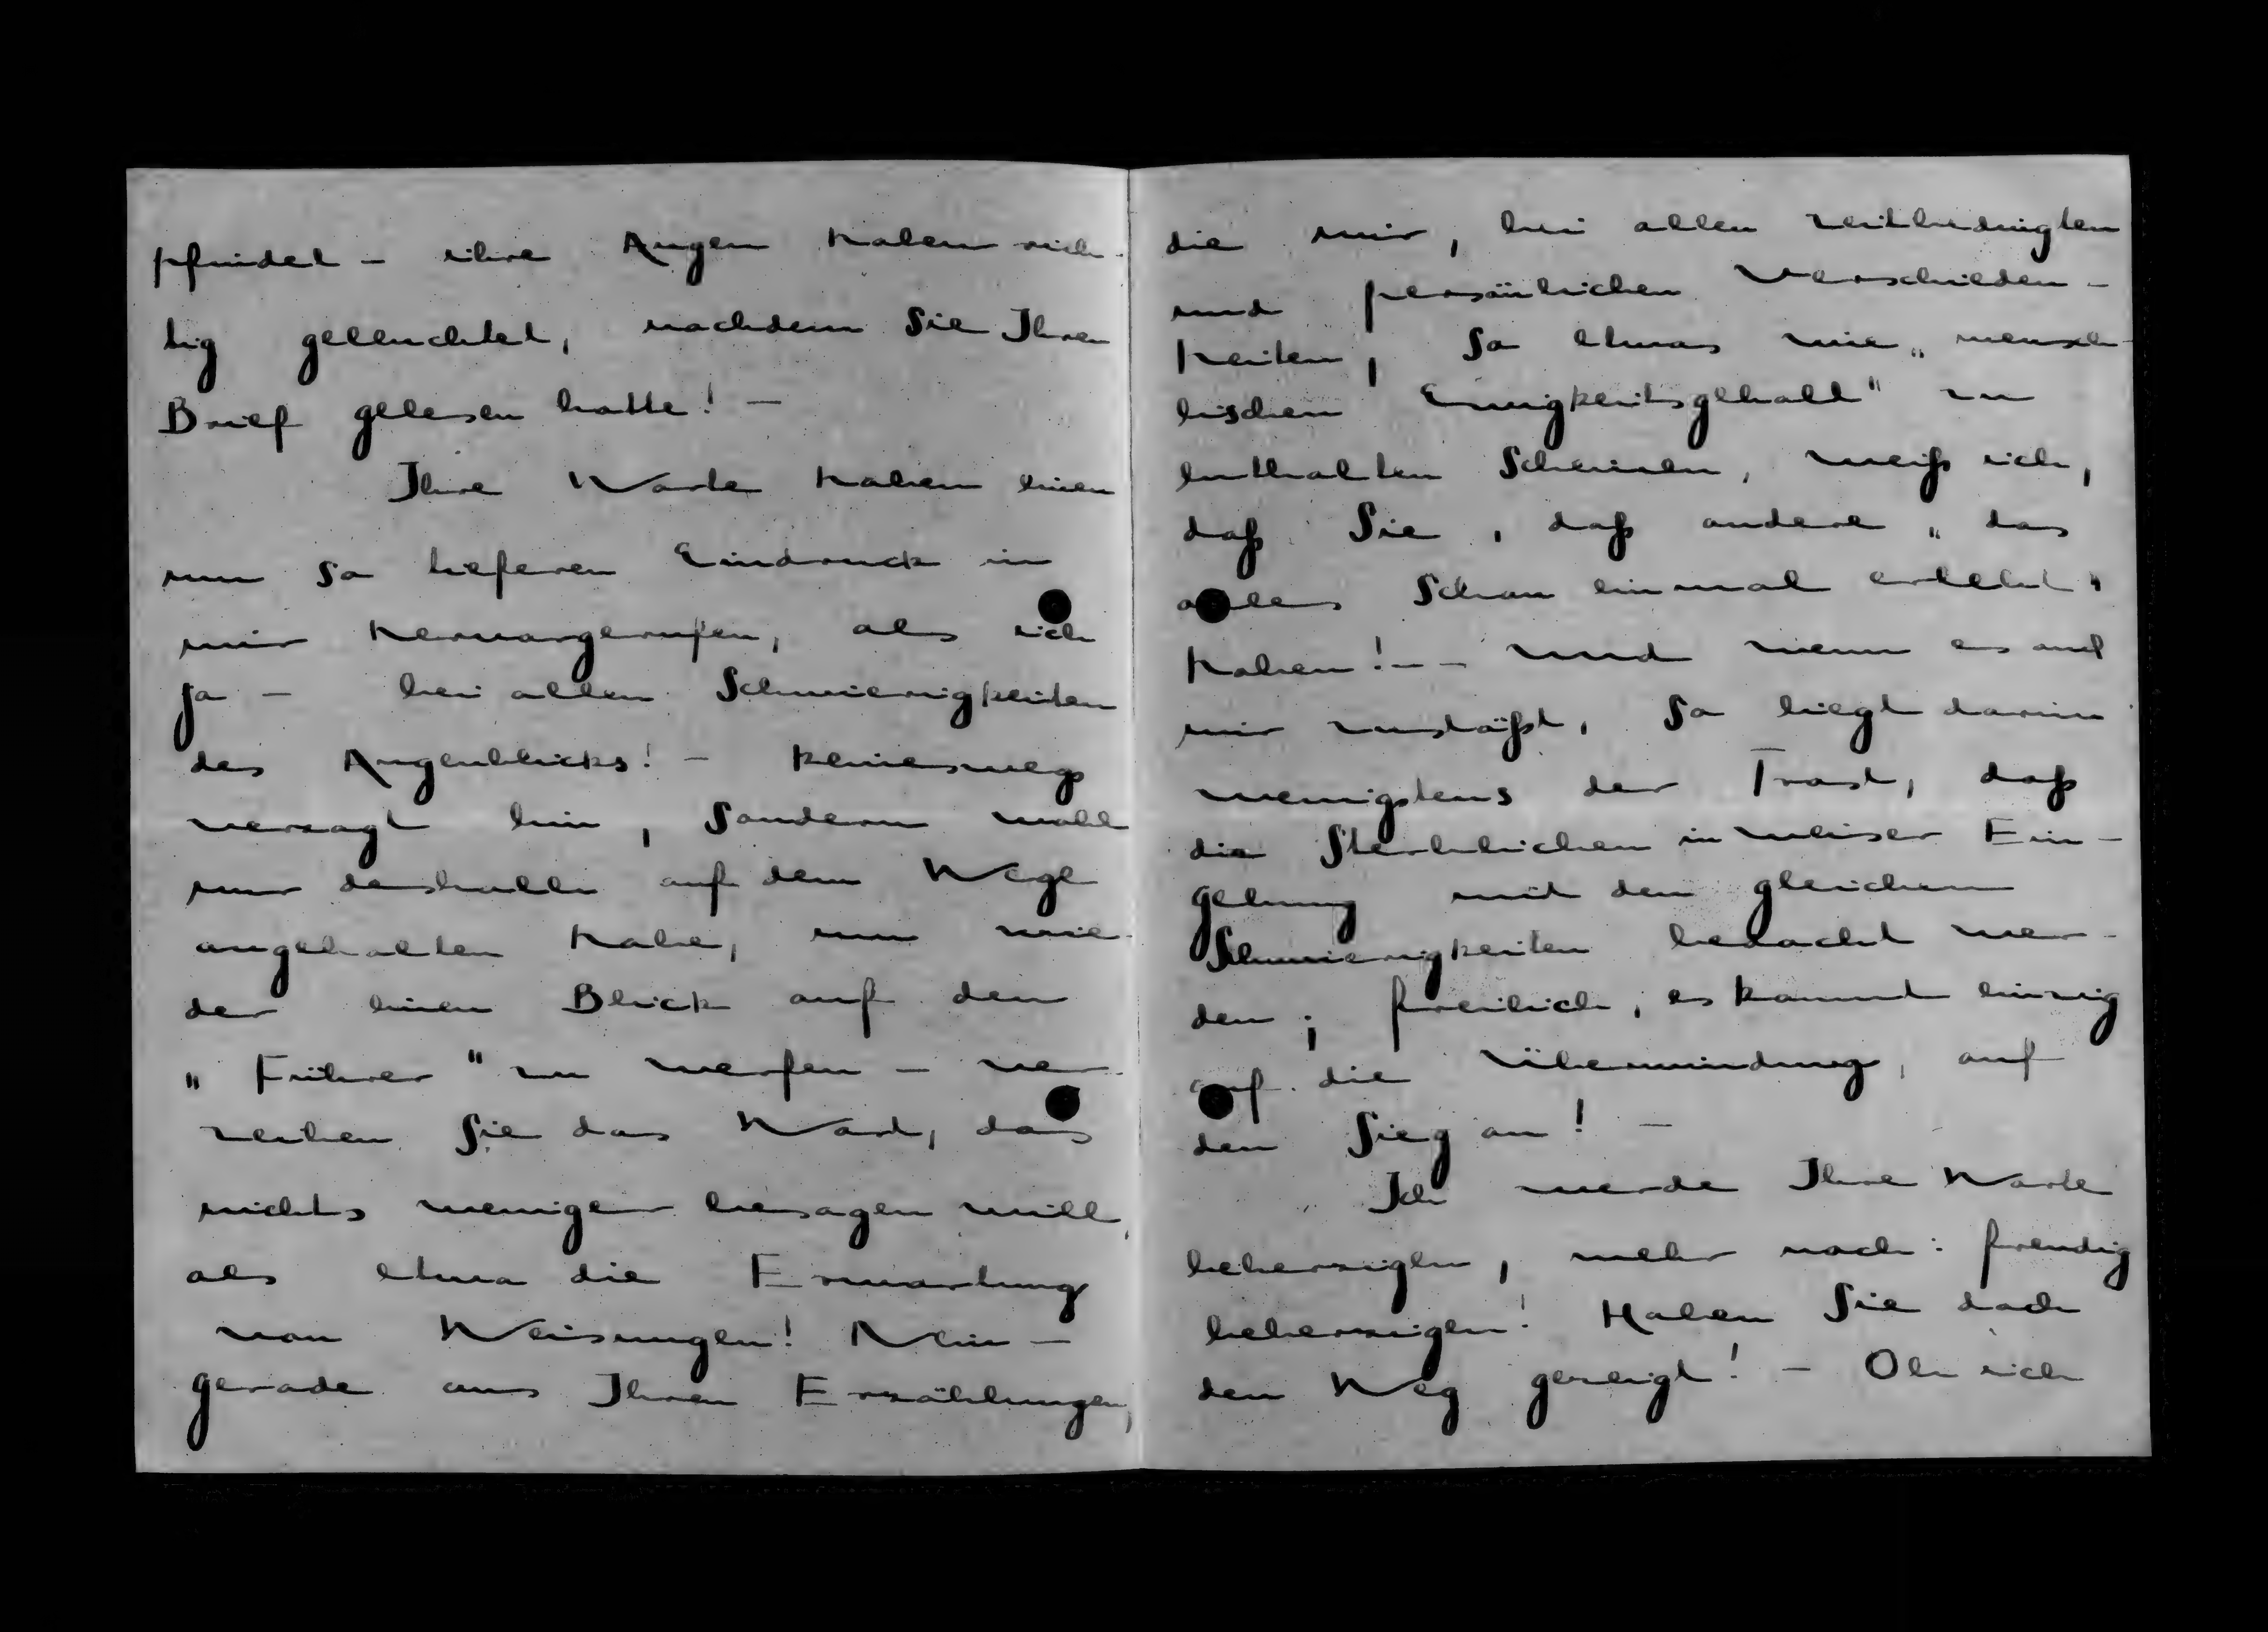 pfindet - ihre Augen haben rich-
tig geleuchtet, nachdem Sie Ihren
Brief gelesen hatte! -
Ihre Worte haben einen
um so tieferen Eindruck in
mir hervorgerufen, als ich
ja - bei allen Schwierigkeiten
des Augenblicks! - keineswegs
verzagt bin, sondern wohl
nur deshalb auf dem Wege
angehalten habe, um wie-
der einen Blick auf den
„Führer" zu werfen - ver-
zeihen Sie das Wort, das
nichts weniger besagen will,
als etwa die Erwartung
von Weisungen! Nein -
gerade aus Ihren Erzählungen,
die mir, bei allen zeitbedingten
und persönlichen Verschieden-
heiten, so etwas wie „mensch-
lischen Ewigkeitsgehalt" zu
enthalten scheinen, weiß ich,
daß Sie, daß andere „das
alles schon einmal erlebt"
haben! - - Und wenn es auch
mir zustößt, so liegt darin
wenigstens der Trost, daß
die Sterblichen in weiser Ein-
gebung mit den gleichen
Schwierigkeiten bedacht wer-
den; freilich, es kommt einzig
auf die Überwindung, auf
den Sieg an! -
Ich werde Ihre Worte
beherzigen, mehr noch: freudig
beherzigen! Haben Sie doch
den Weg gezeigt! - Ob ich